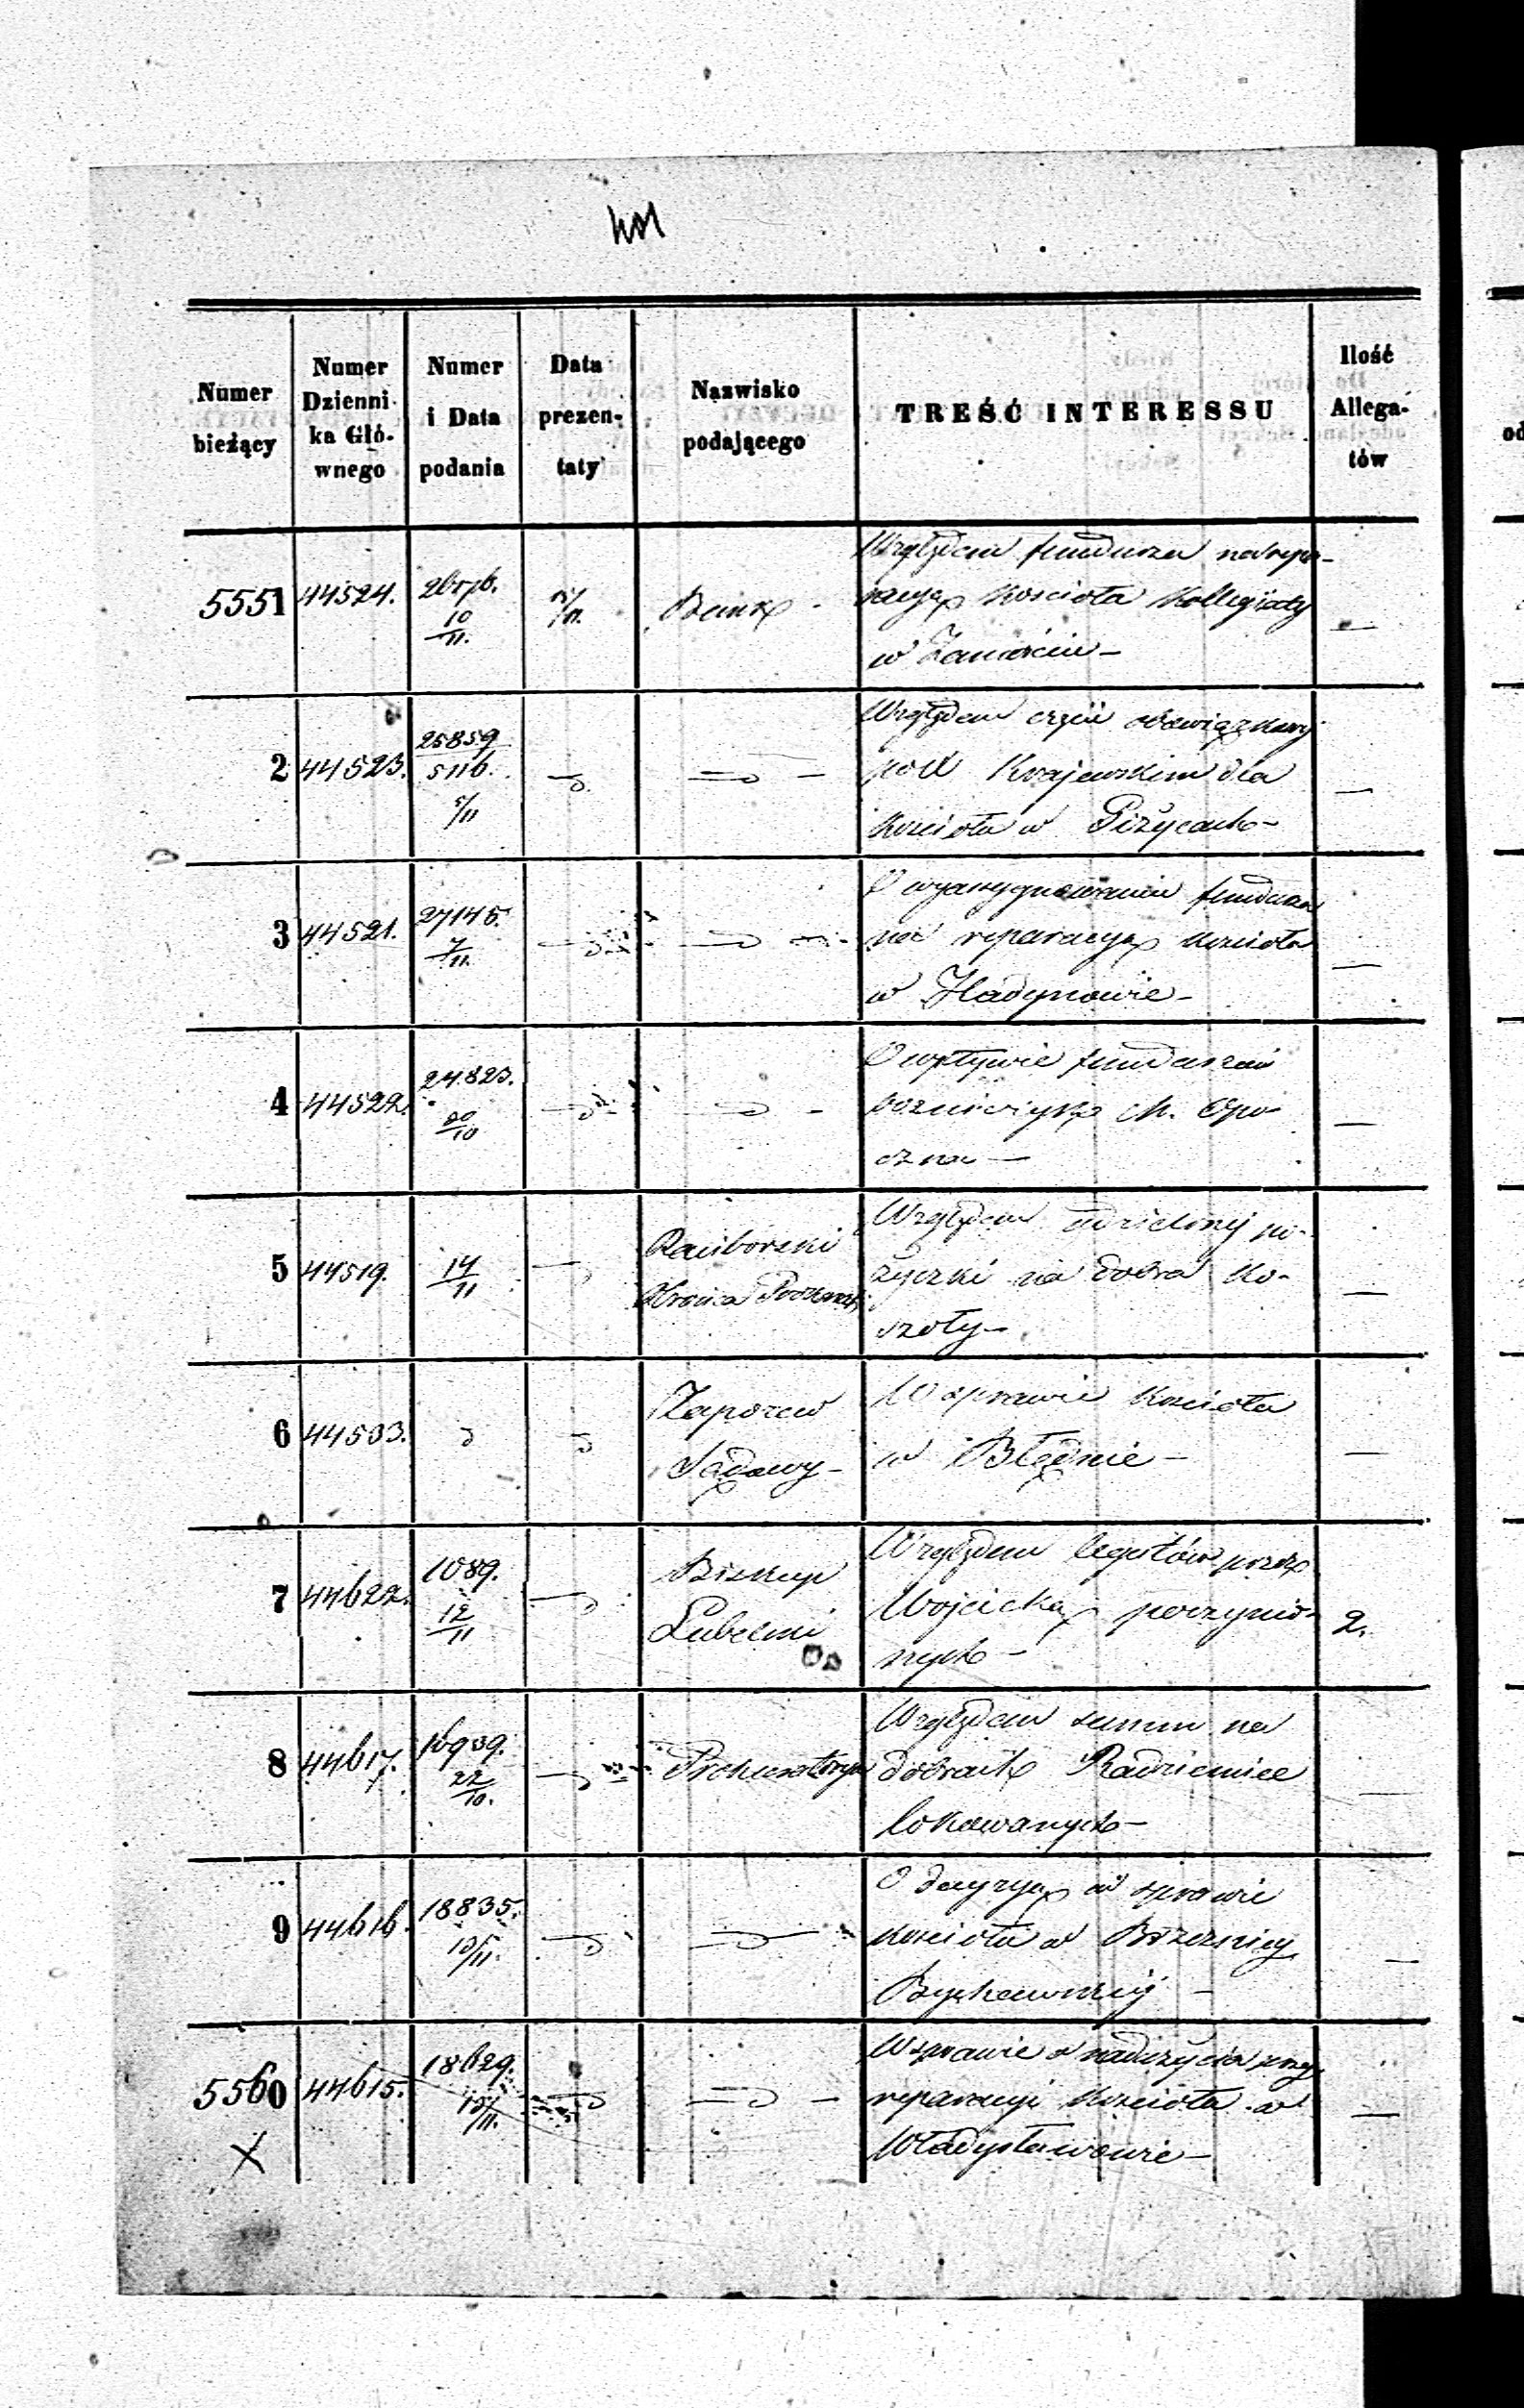 Numer bieżący
Numer Dzienni- ka Głó- wnego
Numer i Data podania
Data prezen- taty
Nazwisko podającego
TREŚĆ INTERESSU
Ilość Allega- tów
5551 44524. 10/11. Bank
Względem funduszu na repa-
racyą Kościoła Kollegiaty
w Zamościu –
2 44523. 25859/5116. 5/11
Względem części obowiązkowej
Krajewskim dla
Kościoła w Giżycach –
3 44521. 27145. 7/11.
O wyasygnowanie funduszu
na reparacyą Kościoła
w Hadynowie –
4 44522. 24.823. 20/10
O wpływie funduszów
M. Opo-
czna –
5 44519. 14/11 Raciborski
Obrońca
Względem udzielonej po-
życzki na dobra Ko-
szoły –
6 44503. d d Zapozew
Sądowy –
W sprawie Kościoła
w Błędnie –
7 44622. 1089. 12/11 Biskup
Lubelski
Względem legatów przez
Wojcicką poczynio-
nych – 2.
8 44617. 16939. 22/10. Prokuratorya
Względem summ na
dobrach Radziemice
lokowanych –
9 44616. 18835. 15/11.
O decyzyą w sprawie
Kościoła w Brzeznicy
Bychawskiej –
5560 44615. 18629. 15/11.
W sprawie o nadużycia przy
reparacyi Kościoła w
Władysławowie –
X